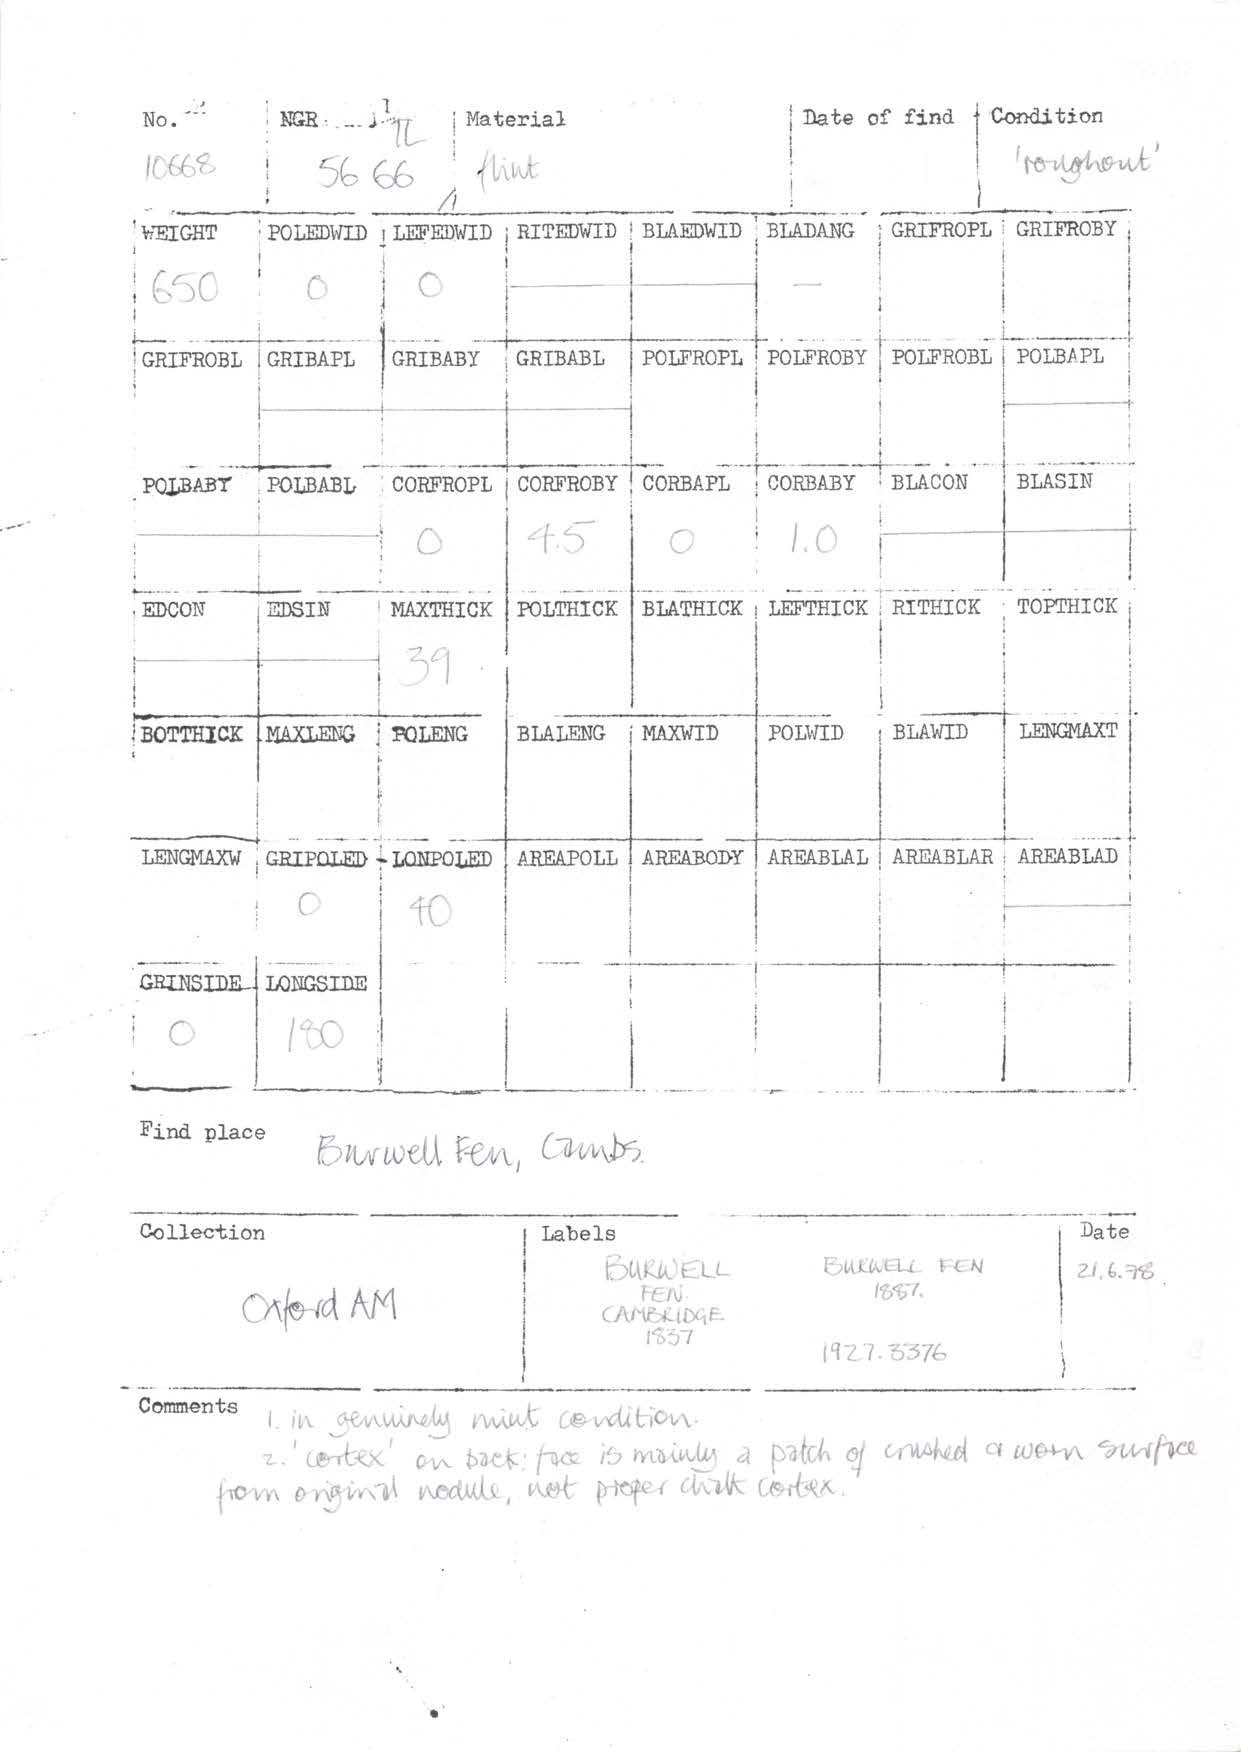 No. NGR TL Material Date of find Condition
10668 56 66 flint 'roughout'
WEIGHT POLEDWID LEFEDWID RITEDWID BLAEDWID BLADANG GRIFROPL GRIFROBY
650 0 0 —
GRIFROBL GRIBAPL GRIBABY GRIBABL POLFROPL POLFROBY POLFROBL POLBAPL
POLBABY POLBABL CORFROPL CORFROBY CORBAPL CORBABY BLACON BLASIN
0 4.5 0 1.0
EDCON EDSIN MAXTHICK POLTHICK BLATHICK LEFTHICK RITHICK TOPTHICK
39
BOTTHICK MAXLENG POLENG BLALENG MAXWID POLWID BLAWID LENGMAXT
LENGMAXW GRIPOLED LONPOLED AREAPOLL AREABODY AREABLAL AREABLAR AREABLAD
0 40
GRINSIDE LONGSIDE
0 180
Find place Burwell Fen, Cambs.
Collection Labels Date
Oxford AM
BURWELL
FEN.
CAMBRIDGE
1837
BURWELL FEN
1887.
1927.3376
21.6.78
Comments 1. in genuinely mint condition.
2. 'cortex' on back: face is mainly a patch of crushed or worn surface
from original nodule, not proper chalk cortex.